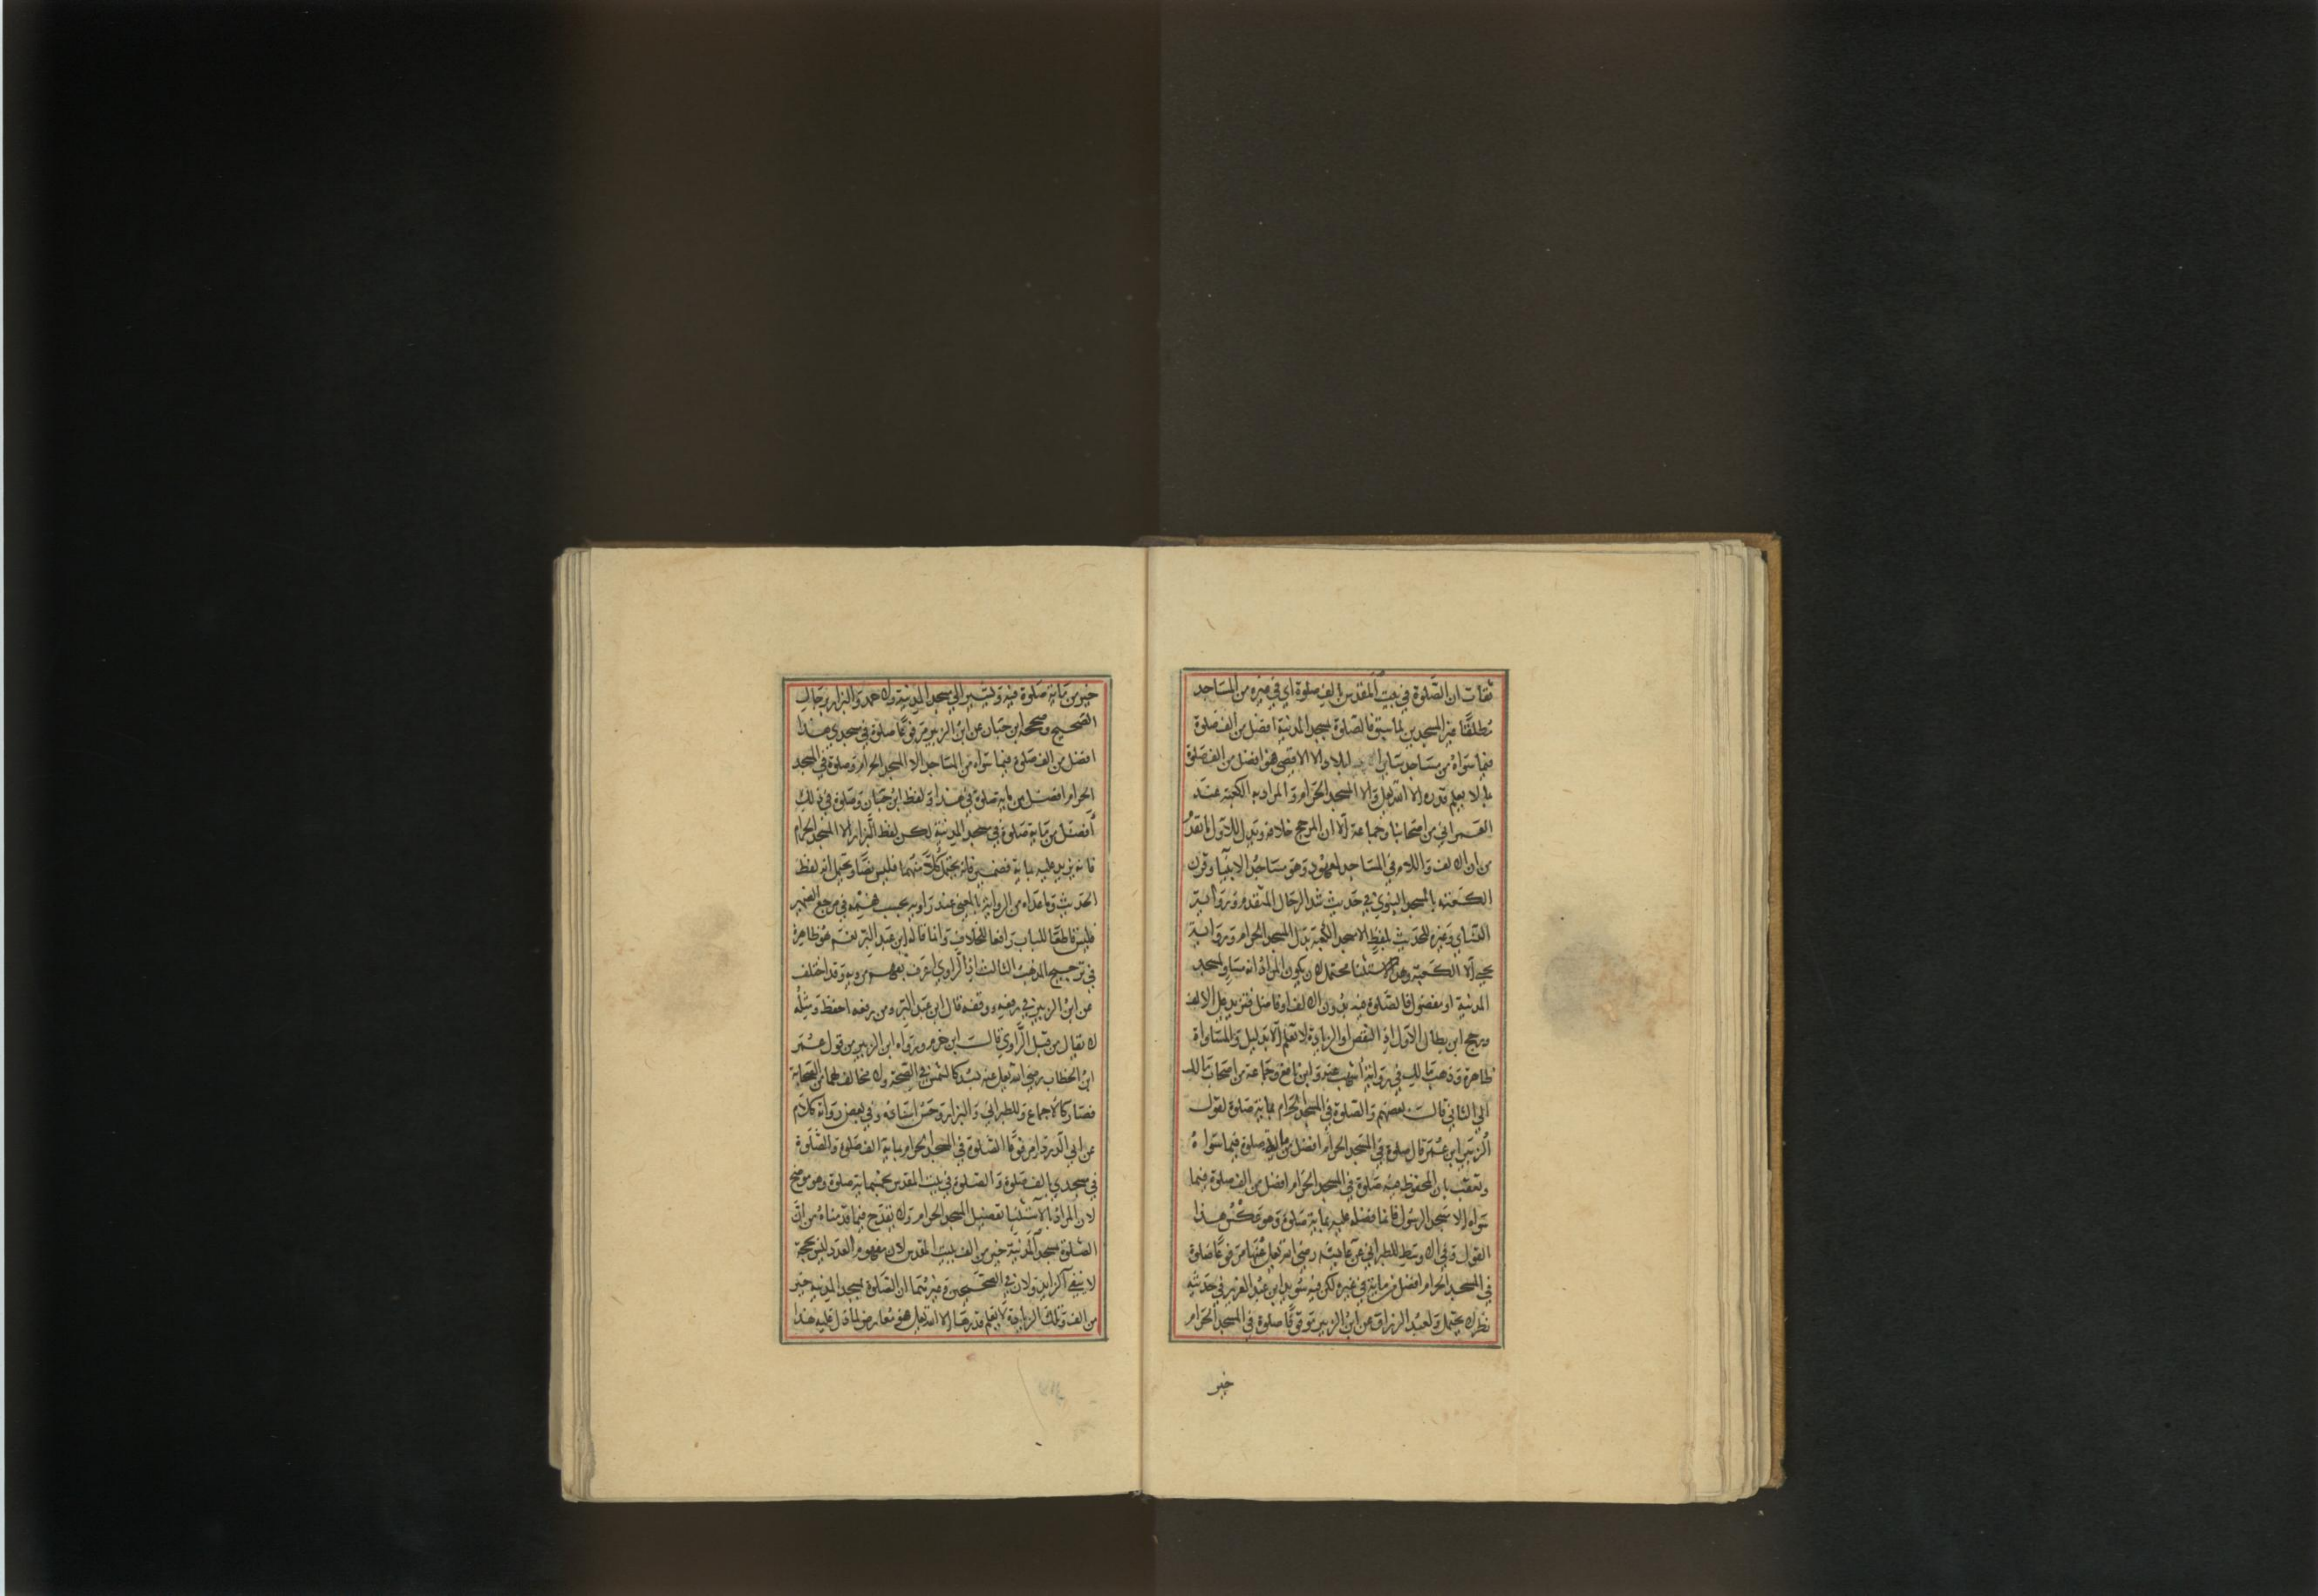 ثقات ان الصلوة في بيت المقدس بالف صلوة اي في غيره من المساجد
مطلقا غير المسجدين لما سبق فالصلوة بمسجد المدينة افضل من الف صلوة
فيما سواه من مساجد ساير البلاد الا الاقصى فهو افضل من الف صلوة
بما لا يعلم قدره الا الله تعالى والا المسجد الحرام والمراد به الكعبة عند
العمراني من اصحابنا وجماعة الا ان المرجح خلافه ويدل للاول ما تقدم
من ان الالف واللام في المساجد لمعهود وهو مساجد الانبيا وقرن
الكعبة بالمسجد النبوي في حديث شد الرحال المتقدم ورواية
النساي وغيره للحديث بلفظ الا مسجد الكعبة بدل المسجد الحرام ورواية
يحيى الا الكعبة وهذا الاستثنا محتمل لان يكون المراد انه مساو لمسجد
المدينة او مفضول فالصلوة فيه بدون الالف او فاضل فتزيد على الالف
ورجح ابن بطال الاول اذ النقص او الزيادة لا تعلم الا بدليل والمساواة
ظاهرة وذهب مالك في رواية اشهب عنه وابن نافع وجماعة من اصحاب مالك
الى الثاني قال بعضهم والصلوة في المسجد الحرام بماية صلوة لقول
الزبير ابن عمر قال صلوة في المسجد الحرام افضل من ماية صلوة فيما سواه
وتعقب بان المحفوظ عنه صلوة في المسجد الحرام افضل من الف صلوة فيما
سواه الا مسجد الرسول فانما فضله عليه بماية صلوة وهو عكس هذا
القول وفي الاوسط للطبراني عن عايشة رضي الله تعالى عنها مرفوعا صلوة
في المسجد الحرام افضل من ماية في غيره لكن فيه سويد ابن عبد العزيز في حديثه
نظر لا يحتمل ولعبد الرزاق عن ابن الزبير موقوفا صلوة في المسجد الحرام
خير
خير من ماية صلوة فيه ويشير الى مسجد المدينة ولاحمد والبزار برجال
الصحيح وصححه ابن حبان عن ابن الزبير مرفوعا صلوة في مسجدي هذا
افضل من الف صلوة فيما سواه من المساجد الا المسجد الحرام وصلوة في المسجد
الحرام افضل من ماية صلوة في هذا ولفظ ابن حبان وصلوة في ذلك
أفضل من ماية صلوة في مسجد المدينة لكن لفظ البزار الا المسجد الحرام
فانه يزيد عليه بماية فضمير فانه يحتمل كلا منهما فليس نصا ويحتمل انه لفظ
الحديث وما عداه من الرواية بالمعنى عند راويه بحسب فهمه في مرجع الضمير
فليس قاطعا للباب رافعا للخلاف وانما قاله ابن عبد البر نعم هو ظاهره
في ترجيح المذهب الثالث اذ الراوي اعرف بفهم مرويه وقد اختلف
عن ابن الزبير في رفعه ووقفه قال ابن عبد البر ومن رفعه احفظ ومثله
لا يقال من قبل الراوي قال ابن حزم ورواه ابن الزبير من قول عمر
ابن الخطاب رضي الله تعالى عنه بسند كالشمس في الصحة ولا مخالف لهما من الصحابة
فصار كالاجماع وللطبراني والبزار وحسن اسناده وفي بعض رواته كلام
عن ابي الدردا مرفوعا الصلوة في المسجد الحرام بماية الف صلوة والصلوة
في مسجدي بالف صلوة والصلوة في بيت المقدس بخمسماية صلوة وهو موضح
لان المراد بالاستثنا تفضيل المسجد الحرام ولا يقدح فيما قدمناه من ان
الصلوة بمسجد المدينة خير من الف ببيت المقدس لان مفهوم العدد ليس بحجة
لا ينفي الزايد ولان في الصحيحين وغيرهما ان الصلوة بمسجد المدينة خير
من الف وتلك الزيادة لا يعلم قدرها الا الله تعالى فهو معارض لما دل عليه هذا